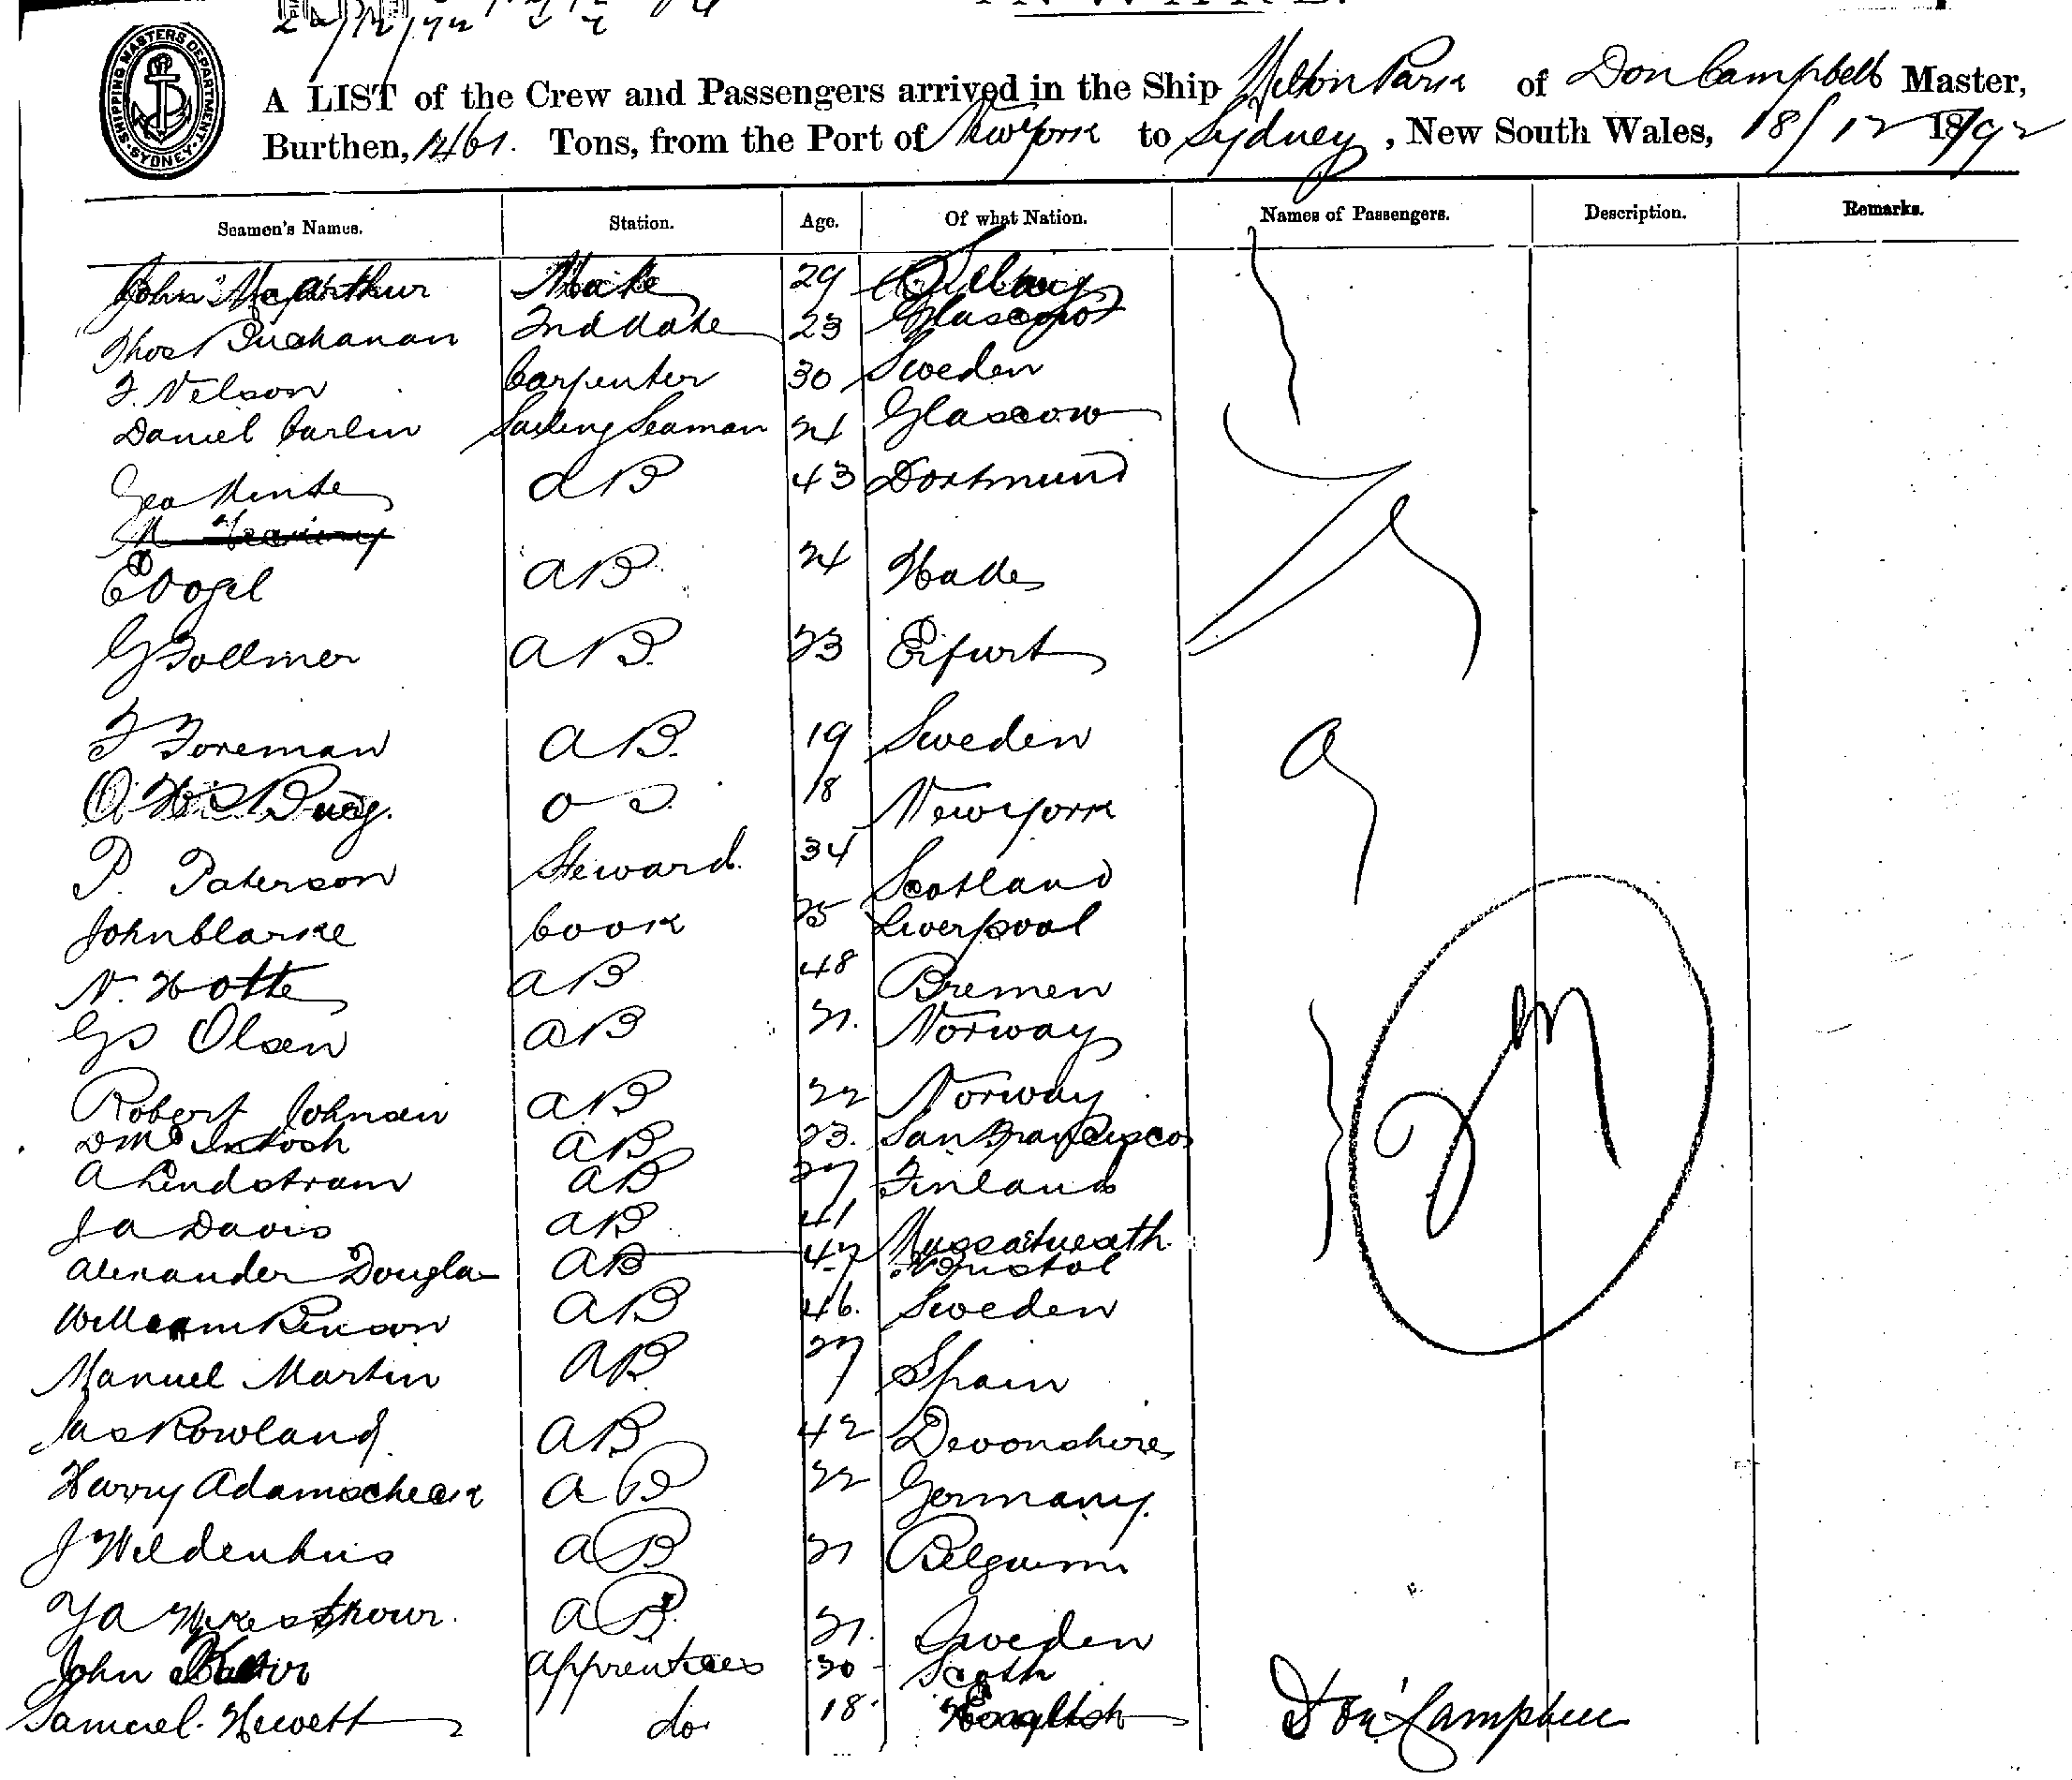 SHIPPING MASTERS DEPARTMENT · SYDNEY ·
A LIST of the Crew and Passengers arrived in the Ship Milton Park of Don Campbell Master,
Burthen, 1461. Tons, from the Port of New York to Sydney, New South Wales, 18/12 1892
Seamen's Names. Station. Age. Of what Nation. Names of Passengers. Description. Remarks.
John McArthur Mate 29
Thos Buchanan 2nd Mate 23 Glascgow
F. Nelson Carpenter 30 Sweden
Daniel Carlin Seaman 24 Glascow
Geo Hinte AB 43 Dortmund
E Vogel AB 24 Halle
G Follmer AB 23 Erfurt
F Foreman AB. 19 Sweden
O S. 18 New York
P. Paterson Steward. 34 Scotland
John Clarke Cook 25 Liverpool
N. Hotte AB 48 Bremen
Olsen AB 21. Norway
Robert Johnsen AB 22 Norway
D McIntosh AB 23. San Francisco
A Lindstram AB 27 Finland
J A Davis AB 41
Alexander Douglas AB 47 Bristol
William Benson AB 46. Sweden
Manuel Martin AB 27 Spain
Jas Rowland AB 42 Devonshire
Harry Adamscheck AB 22 Germany.
J Wildenhus AB 21 Belguim
AB. 21. Sweden
John apprentices 20 Scoth
Samuel Hewett do 18. English
Don Campbell